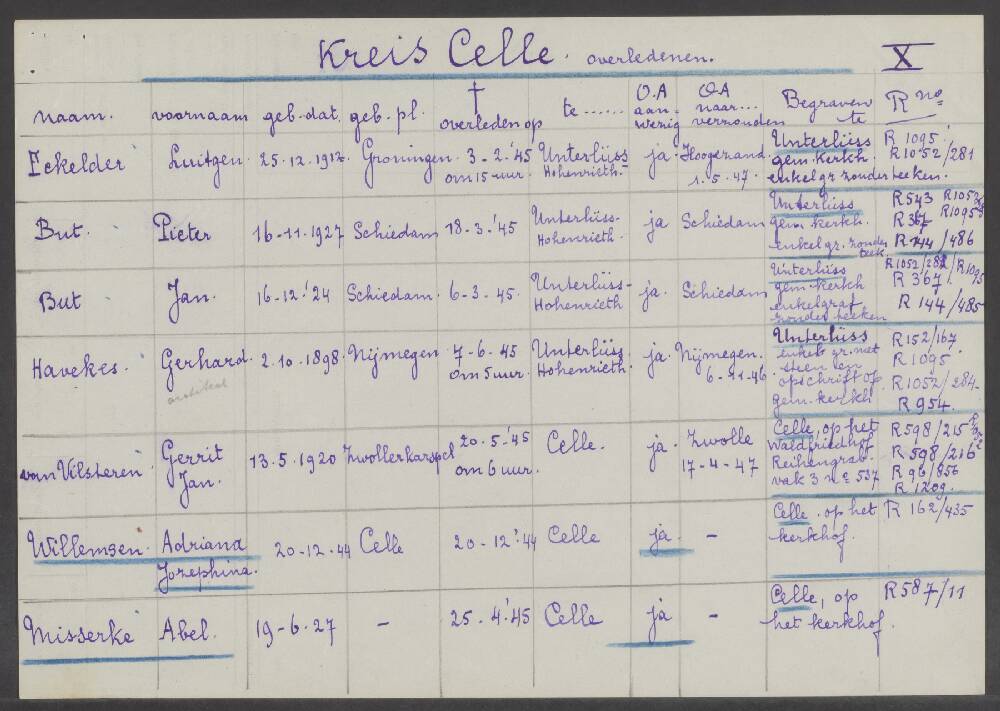 Kreis Celle. overledenen. X
naam. voornaam geb. dat. geb. pl. † overleden op te ...... O.A aan-wezig O.A naar... verzonden Begraven te R no
Eekelder Luitgen. 25.12.1912. Groningen. 3-2.'45 om 15 uur. Unterlüss Hohenrieth. ja. Hoogezand 1.5.47. Unterlüss gem. kerkh. enkel gr. zonder teeken. R 1095 R 1052/281
But. Pieter 16-11-1927 Schiedam 18-3-'45 Unterlüss-Hohenrieth. ja Schiedam Unterlüss gem. kerkh. enkel gr. zonder teek. R 543 R 1052 R 367 R 1095 R 144/486
But Jan. 16-12-'24 Schiedam. 6-3-45. Unterlüss-Hohenrieth ja. Schiedam Unterlüss gem. kerkh enkelgraf zonder teeken R 1052/282 R 367 R 1095 R 144/485
Havekes. Gerhard. architect 2.10.1898. Nijmegen 7-6-45 om 5 uur. Unterlüss Hohenrieth. ja. Nijmegen. 6-11-46. Unterlüss enkel gr. met steen en opschrift op gem. kerkh R 152/167 R 1095 R 1052/284 R 954.
van Vilsteren Gerrit Jan. 13.5.1920 Zwollerkarspel 20.5-'45 om 6 uur. Celle. ja. Zwolle 17-4-47 Celle, op het Waldfriedhof Reihengrab vak 3 no 537 R 598/215 R 598/216 R 96/856 R 1209.
Willemsen. Adriana Josephina. 20-12.44 Celle 20-12-'44 Celle ja. - Celle. op het kerkhof. R 162/435
Misserke Abel. 19-6.27 - 25-4.'45 Celle ja - Celle, op het kerkhof. R 587/11